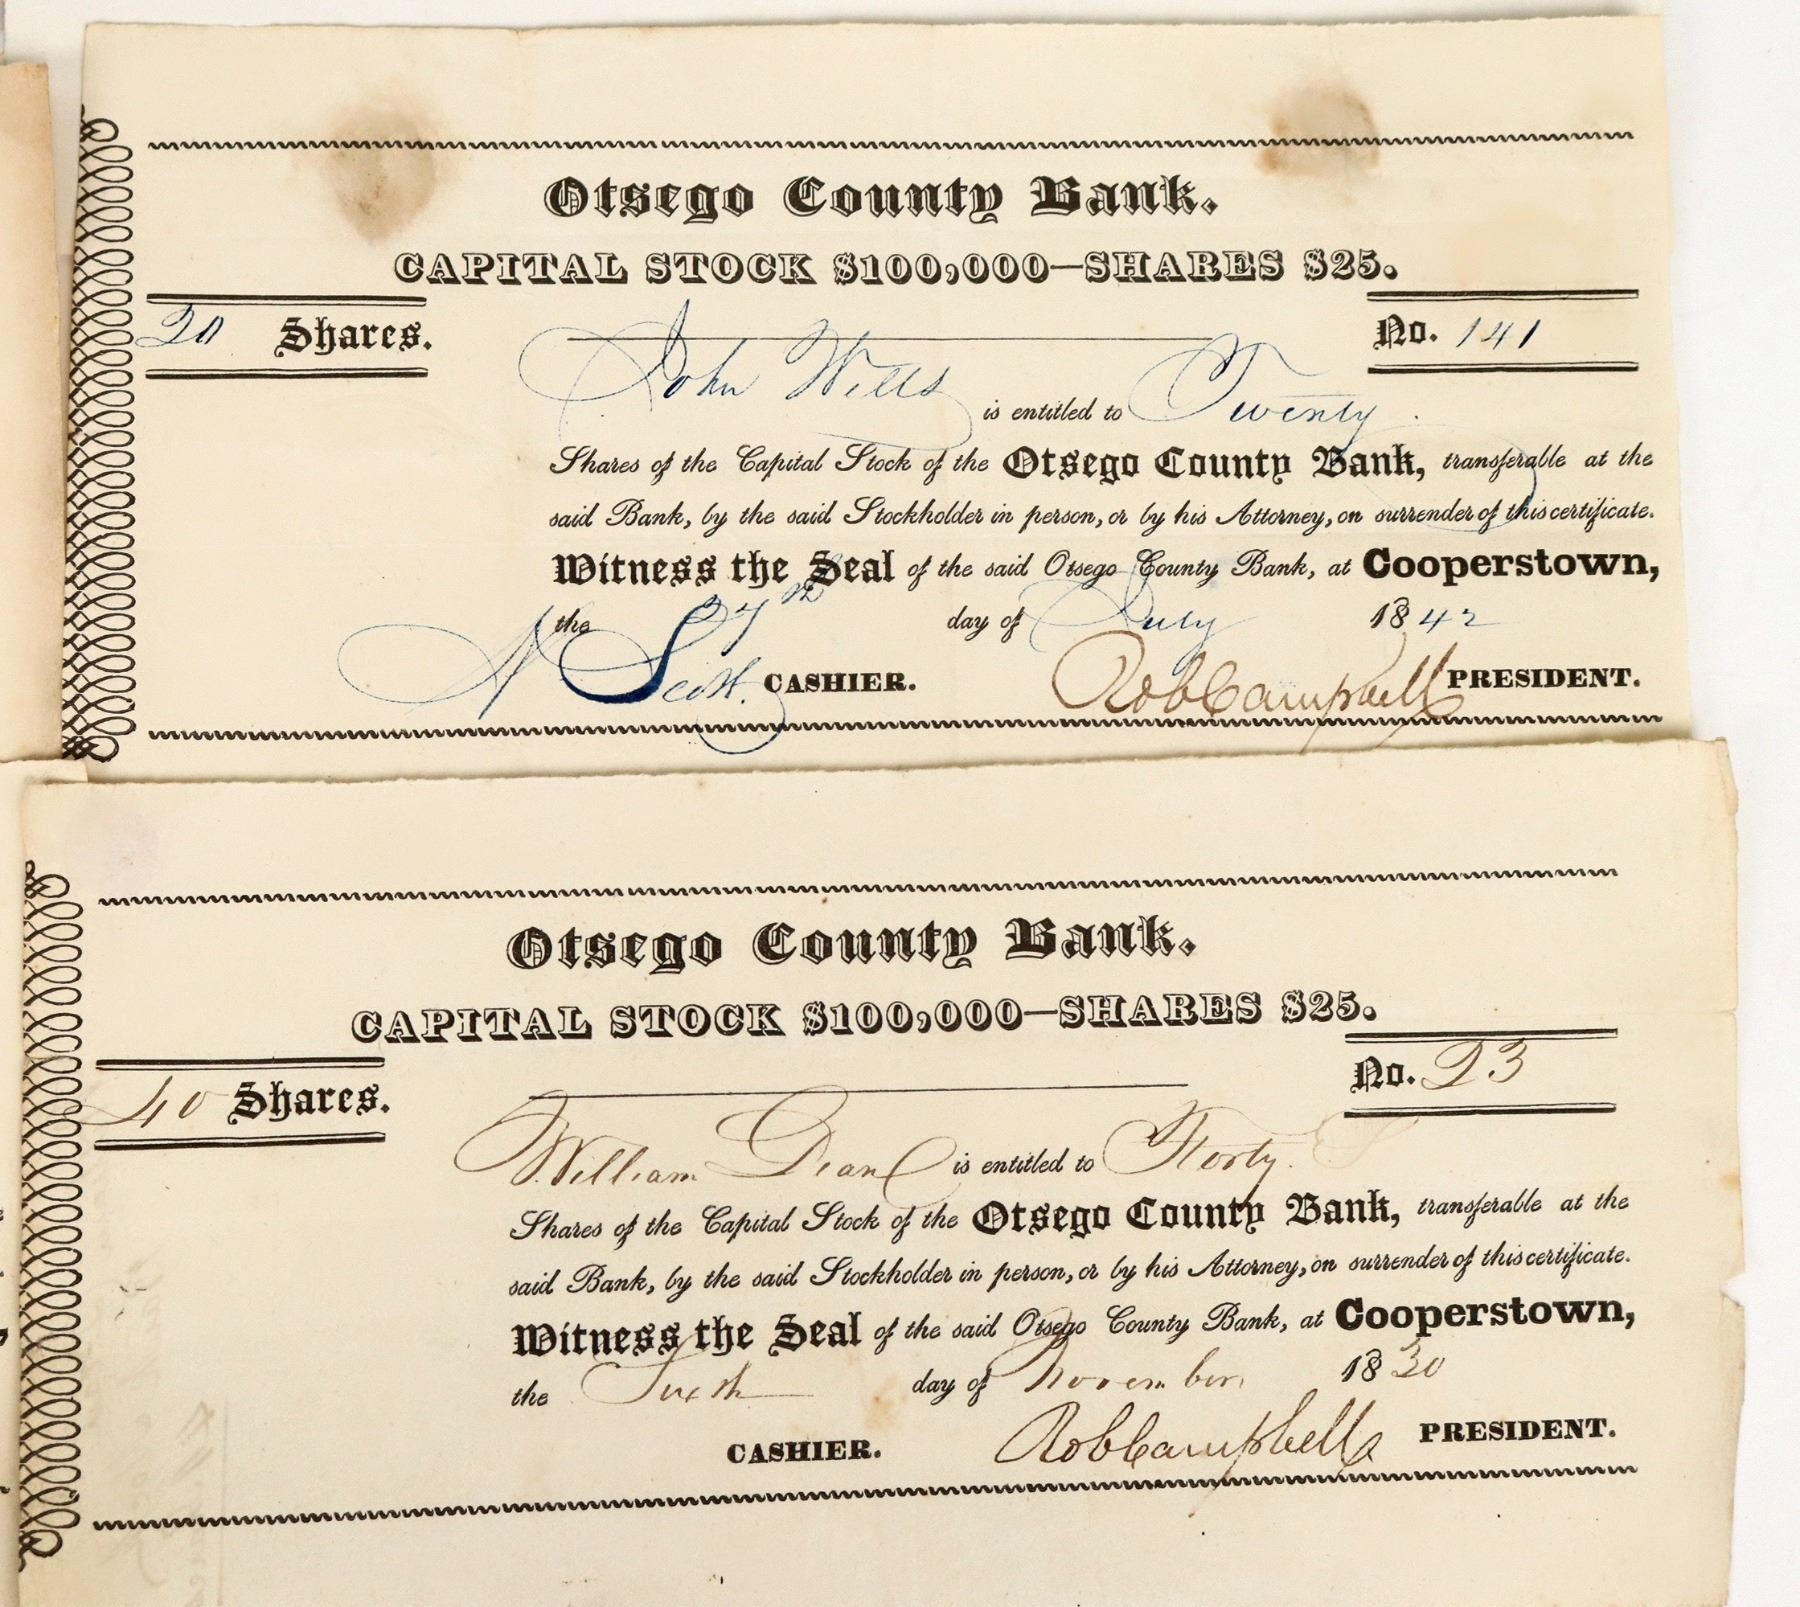 Otsego County Bank.
CAPITAL STOCK $100,000—SHARES $25.
20 Shares.
No. 141
John Wills is entitled to Twenty
Shares of the Capital Stock of the Otsego County Bank, transferable at the
said Bank, by the said Stockholder in person, or by his Attorney, on surrender of this certificate.
Witness the Seal of the said Otsego County Bank, at Cooperstown,
the 27th day of July 1842
H Scott. CASHIER. Rob Campbell PRESIDENT.
Otsego County Bank.
CAPITAL STOCK $100,000—SHARES $25.
40 Shares.
No. 23
William Dean is entitled to Forty
Shares of the Capital Stock of the Otsego County Bank, transferable at the
said Bank, by the said Stockholder in person, or by his Attorney, on surrender of this certificate.
Witness the Seal of the said Otsego County Bank, at Cooperstown,
the Sixth day of November 1830
CASHIER. Rob Campbell PRESIDENT.